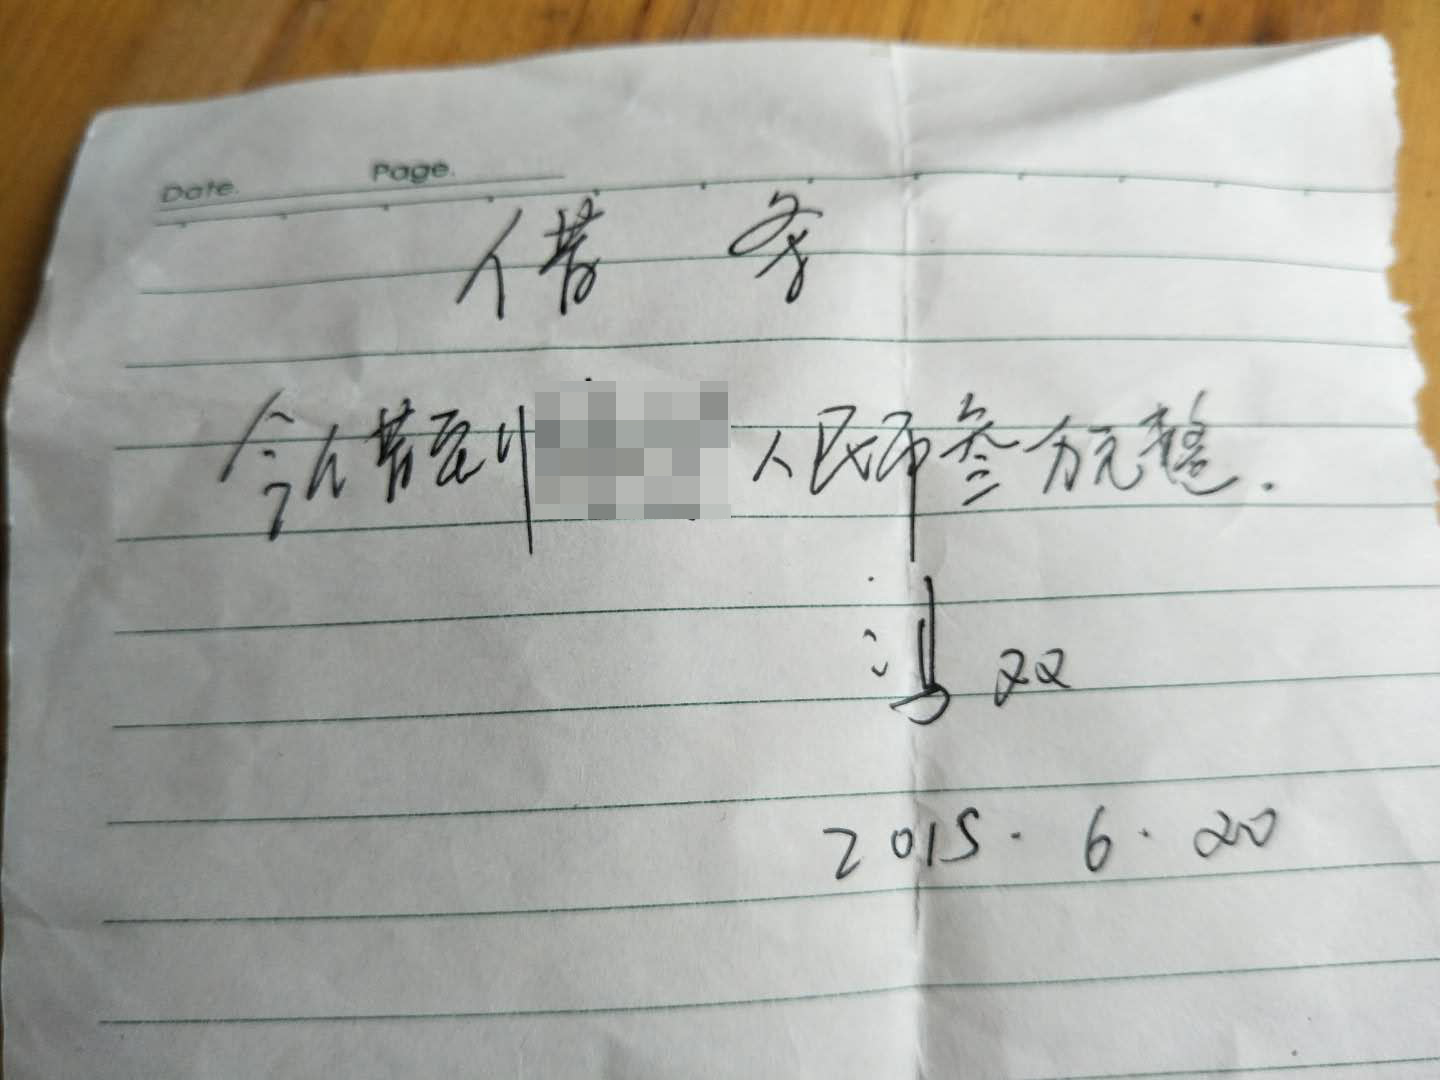 Date. Page.
借 条
今借到 人民币叁万元整.
冯双
2015.6.20